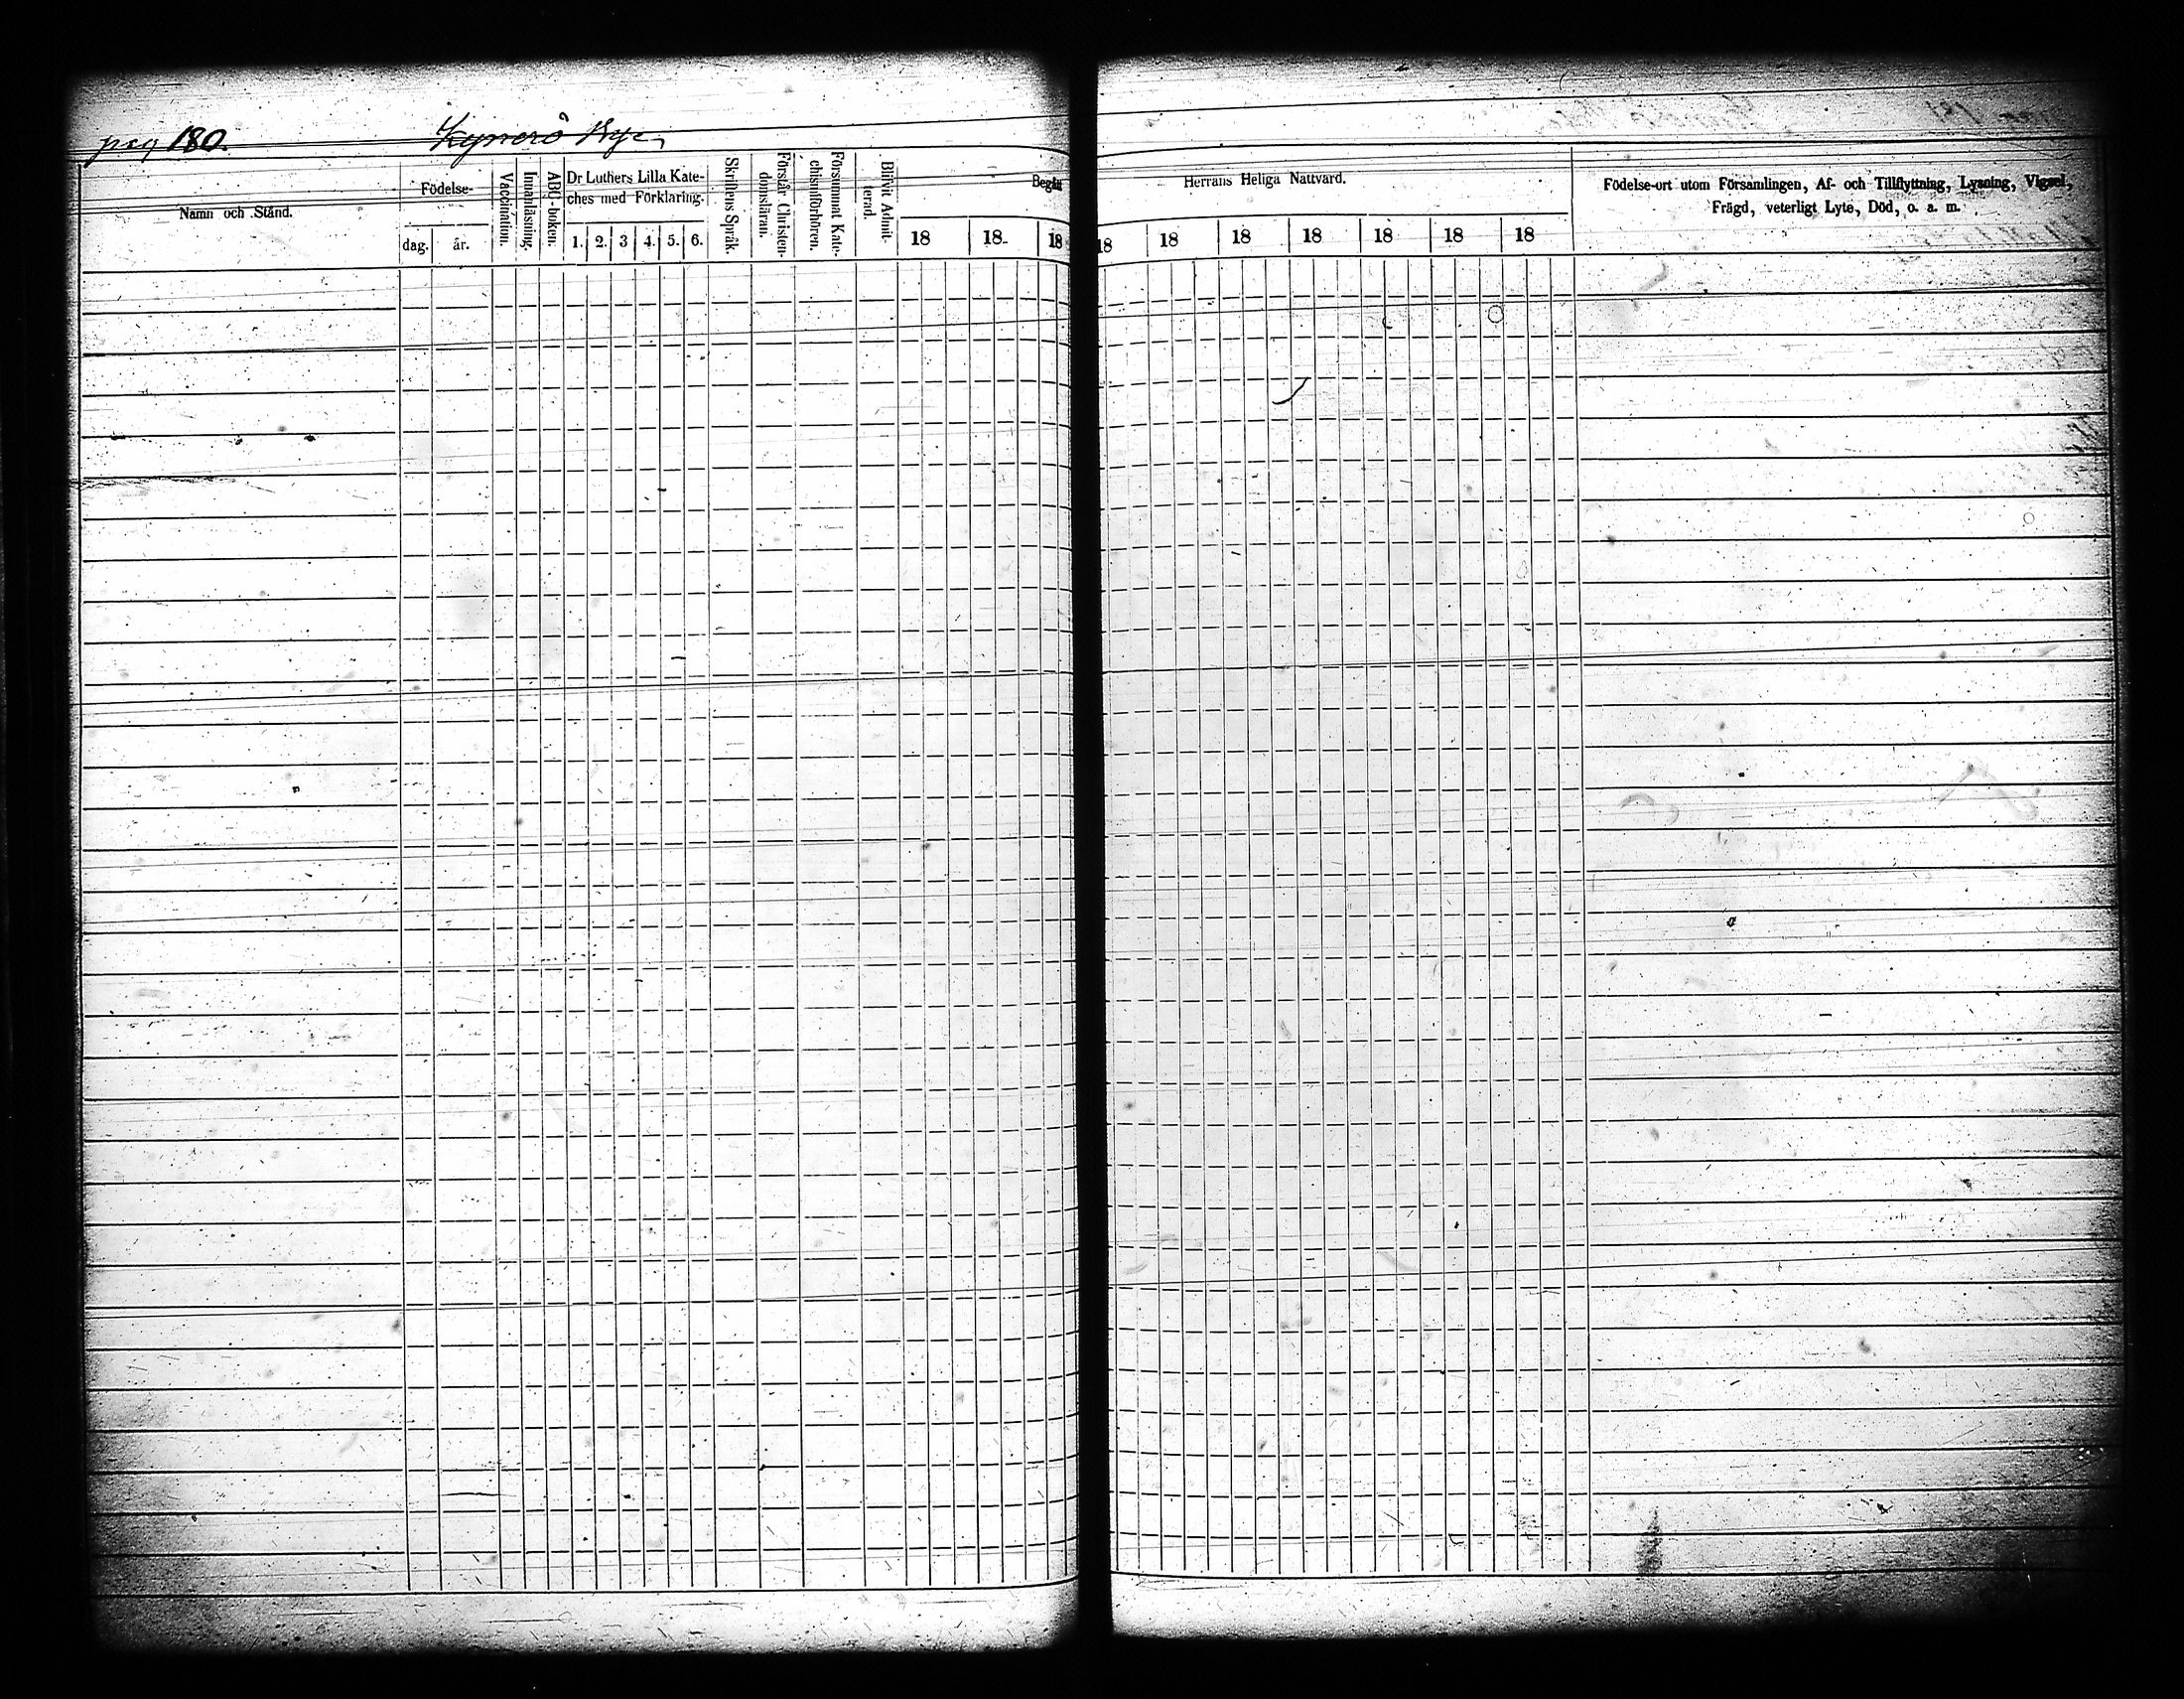 pag 180. Kynerö By.
Namn och Stånd.
Födelse-
dag. år.
Vaccination.
Innanläsning.
ABC-boken.
Dr Luthers Lilla Kate-
ches med Förklaring.
1. 2. 3 4. 5. 6.
Skriftens Språk.
Förstår Christen-
domsläran.
Försummat Kate-
chismiförhören.
Blifvit Admit-
terad.
Begått
18 18 18
Herrans Heliga Nattvard.
18 18 18 18 18 18 18
Födelse-ort utom Församlingen, Af- och Tillflyttning, Lysning, Vigsel,
Frägd, veterligt Lyte, Död, o. a. m.